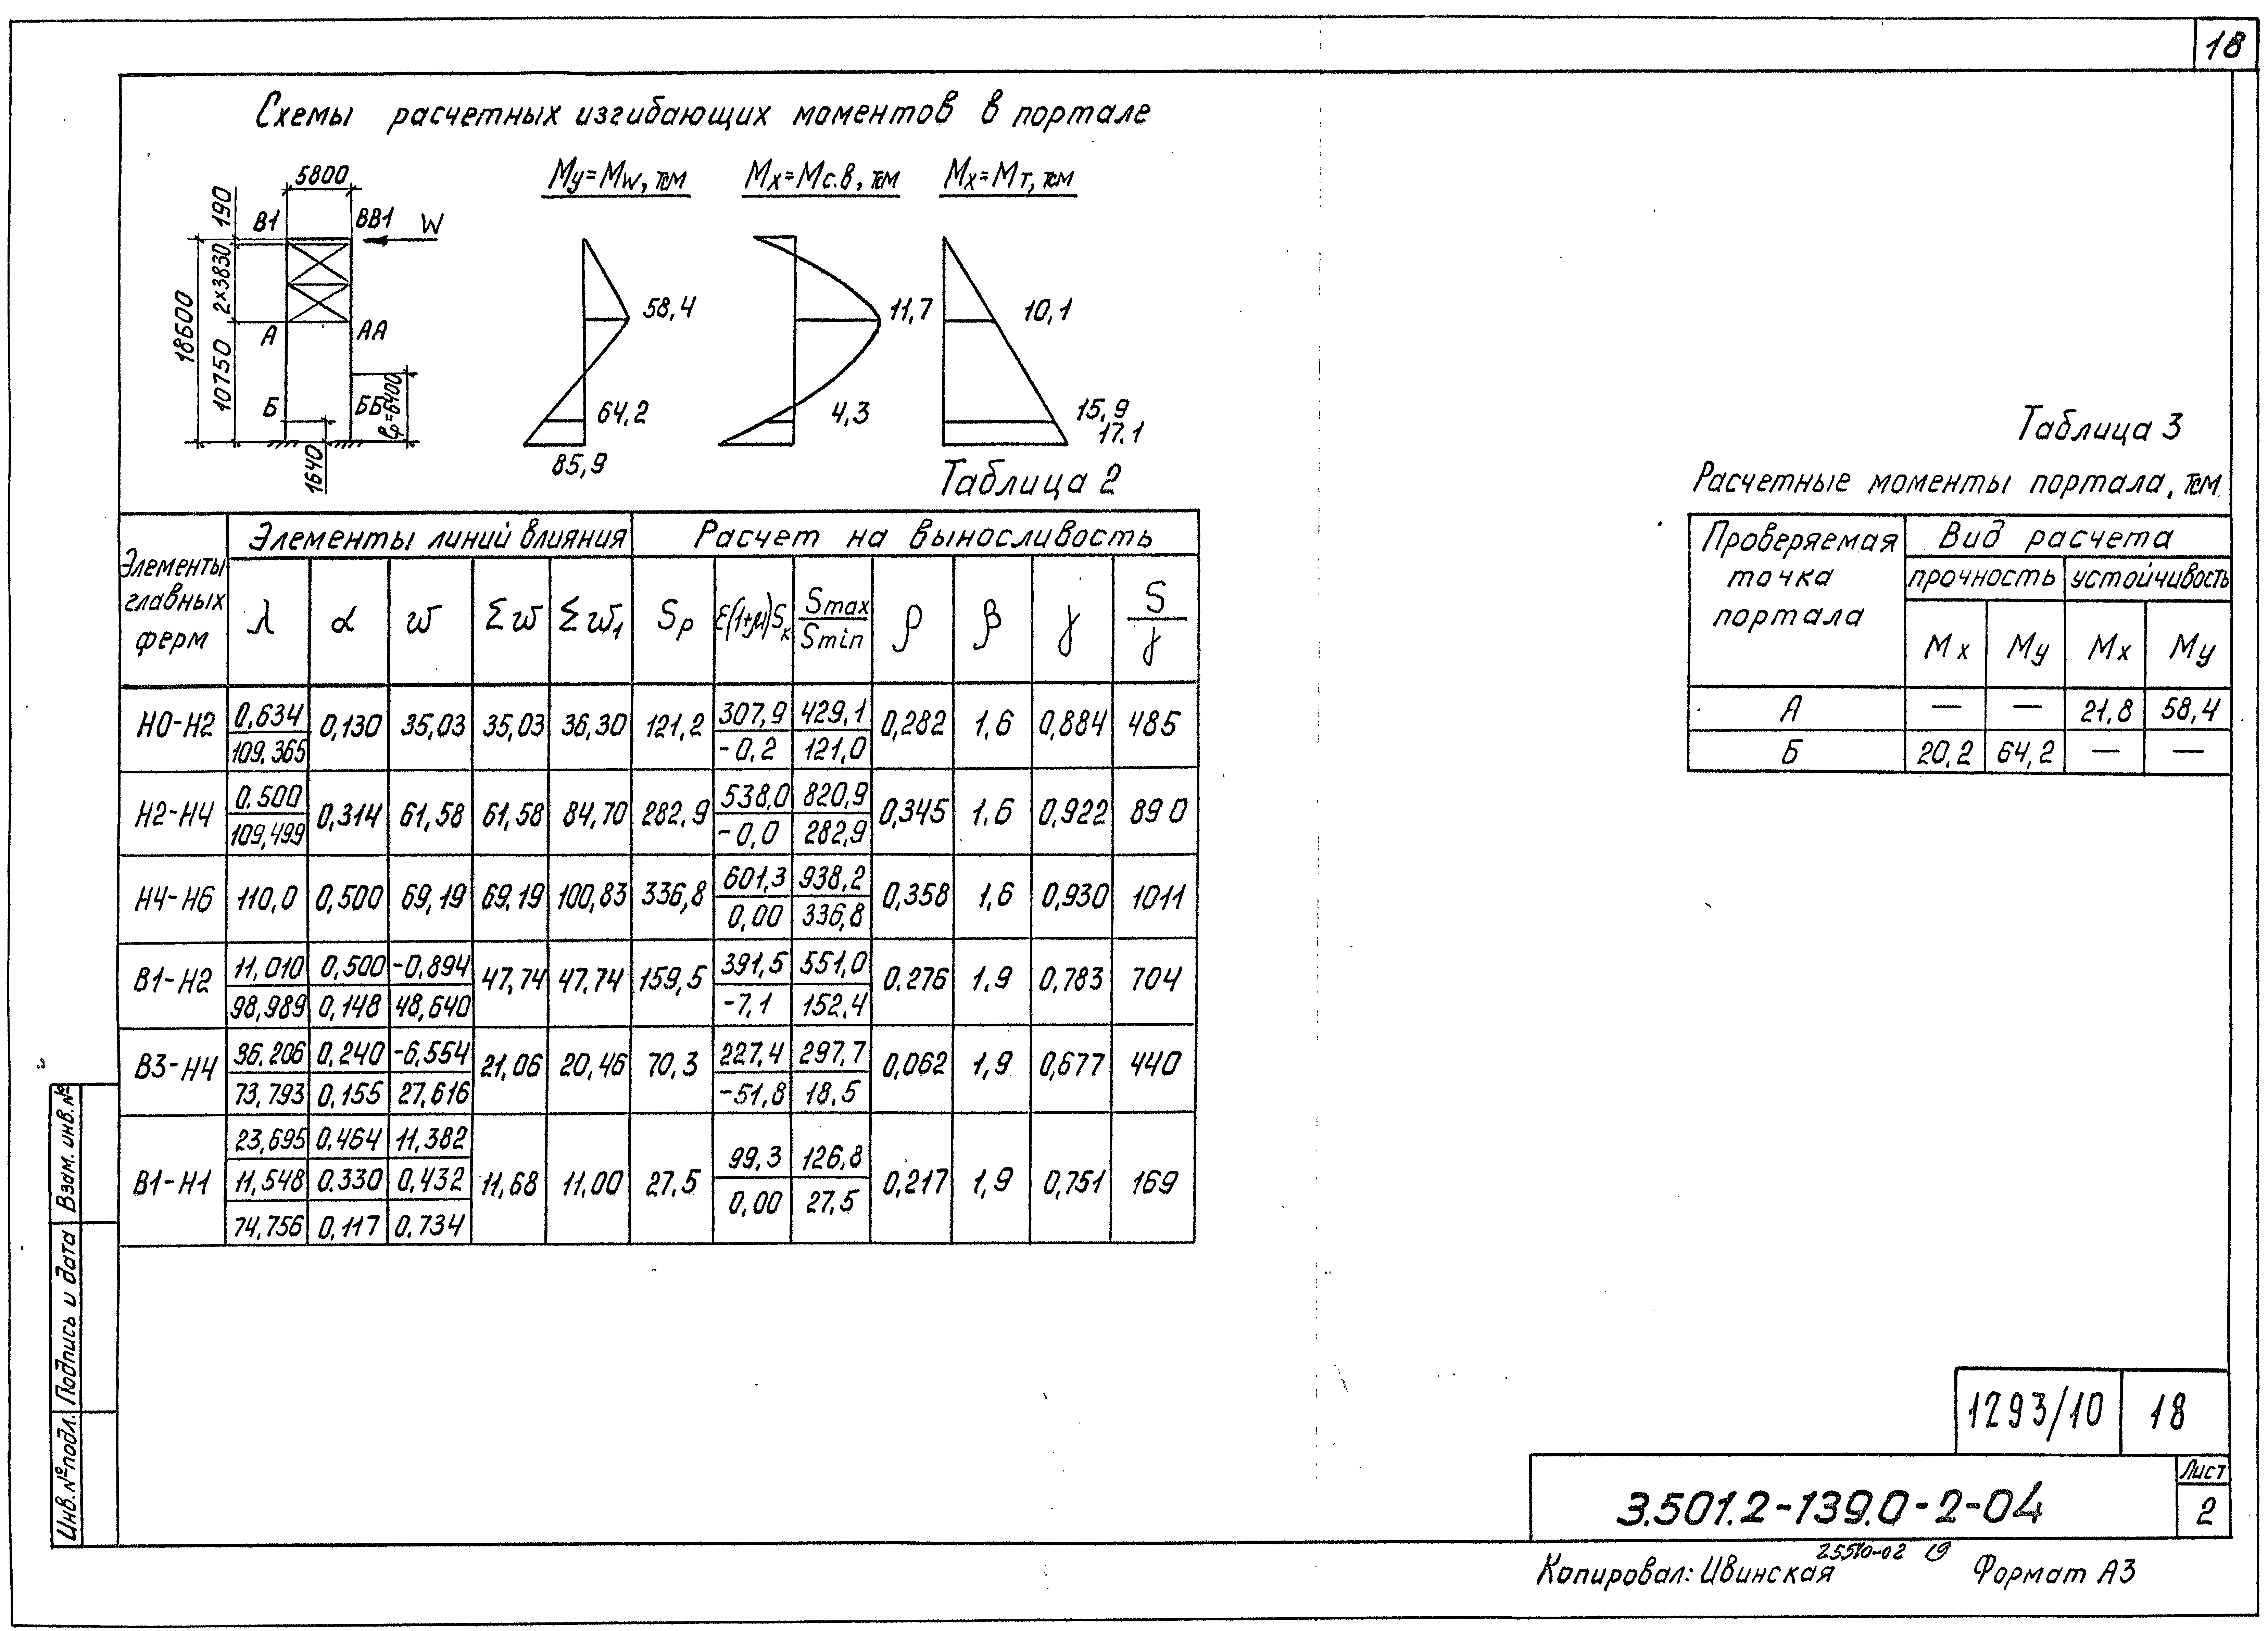 18
Схемы расчетных изгибающих моментов в портале
5800
190
2×3830
10750
18600
В1
ВВ1
W
А
АА
Б
ББ
ℓр=6400
1640
Му=Мw, тсм
58,4
64,2
85,9
Мх=Мс.в, тсм
11,7
4,3
Мх=Мт, тсм
10,1
15,9
17.1
Таблица 2
Элементы главных ферм | Элементы линий влияния | Расчет на выносливость
λ | α | w | Σw | Σw₁ | Sр | ε(1+μ)Sк | Smax/Smin | ρ | β | γ | S/γ
Н0-Н2 | 0,634 / 109,365 | 0,130 | 35,03 | 35,03 | 36,30 | 121,2 | 307,9 / -0,2 | 429,1 / 121,0 | 0,282 | 1,6 | 0,884 | 485
Н2-Н4 | 0.500 / 109,499 | 0,314 | 61,58 | 61,58 | 84,70 | 282,9 | 538,0 / -0,0 | 820,9 / 282,9 | 0,345 | 1.6 | 0,922 | 890
Н4-Н6 | 110,0 | 0,500 | 69,19 | 69,19 | 100,83 | 336,8 | 601,3 / 0,00 | 938,2 / 336,8 | 0,358 | 1,6 | 0,930 | 1011
В1-Н2 | 11,010 / 98,989 | 0,500 / 0,148 | -0,894 / 48,640 | 47,74 | 47,74 | 159,5 | 391,5 / -7,1 | 551,0 / 152,4 | 0.276 | 1,9 | 0,783 | 704
В3-Н4 | 36.206 / 73,793 | 0,240 / 0,155 | -6,554 / 27,616 | 21,06 | 20,46 | 70,3 | 227,4 / -51,8 | 297,7 / 18,5 | 0,062 | 1,9 | 0,677 | 440
В1-Н1 | 23,695 / 11,548 / 74,756 | 0.464 / 0.330 / 0,117 | 11,382 / 0,432 / 0.734 | 11,68 | 11,00 | 27,5 | 99,3 / 0,00 | 126,8 / 27,5 | 0,217 | 1,9 | 0,751 | 169
Таблица 3
Расчетные моменты портала, тсм
Проверяемая точка портала | Вид расчета
прочность | устойчивость
Мх | Му | Мх | Му
А | — | — | 21,8 | 58,4
Б | 20,2 | 64,2 | — | —
Инв.№подл. Подпись и дата Взам. инв.№
1293/10 18
3.501.2-139.0-2-04
Лист
2
25510-02 19
Копировал: Ивинская Формат А3